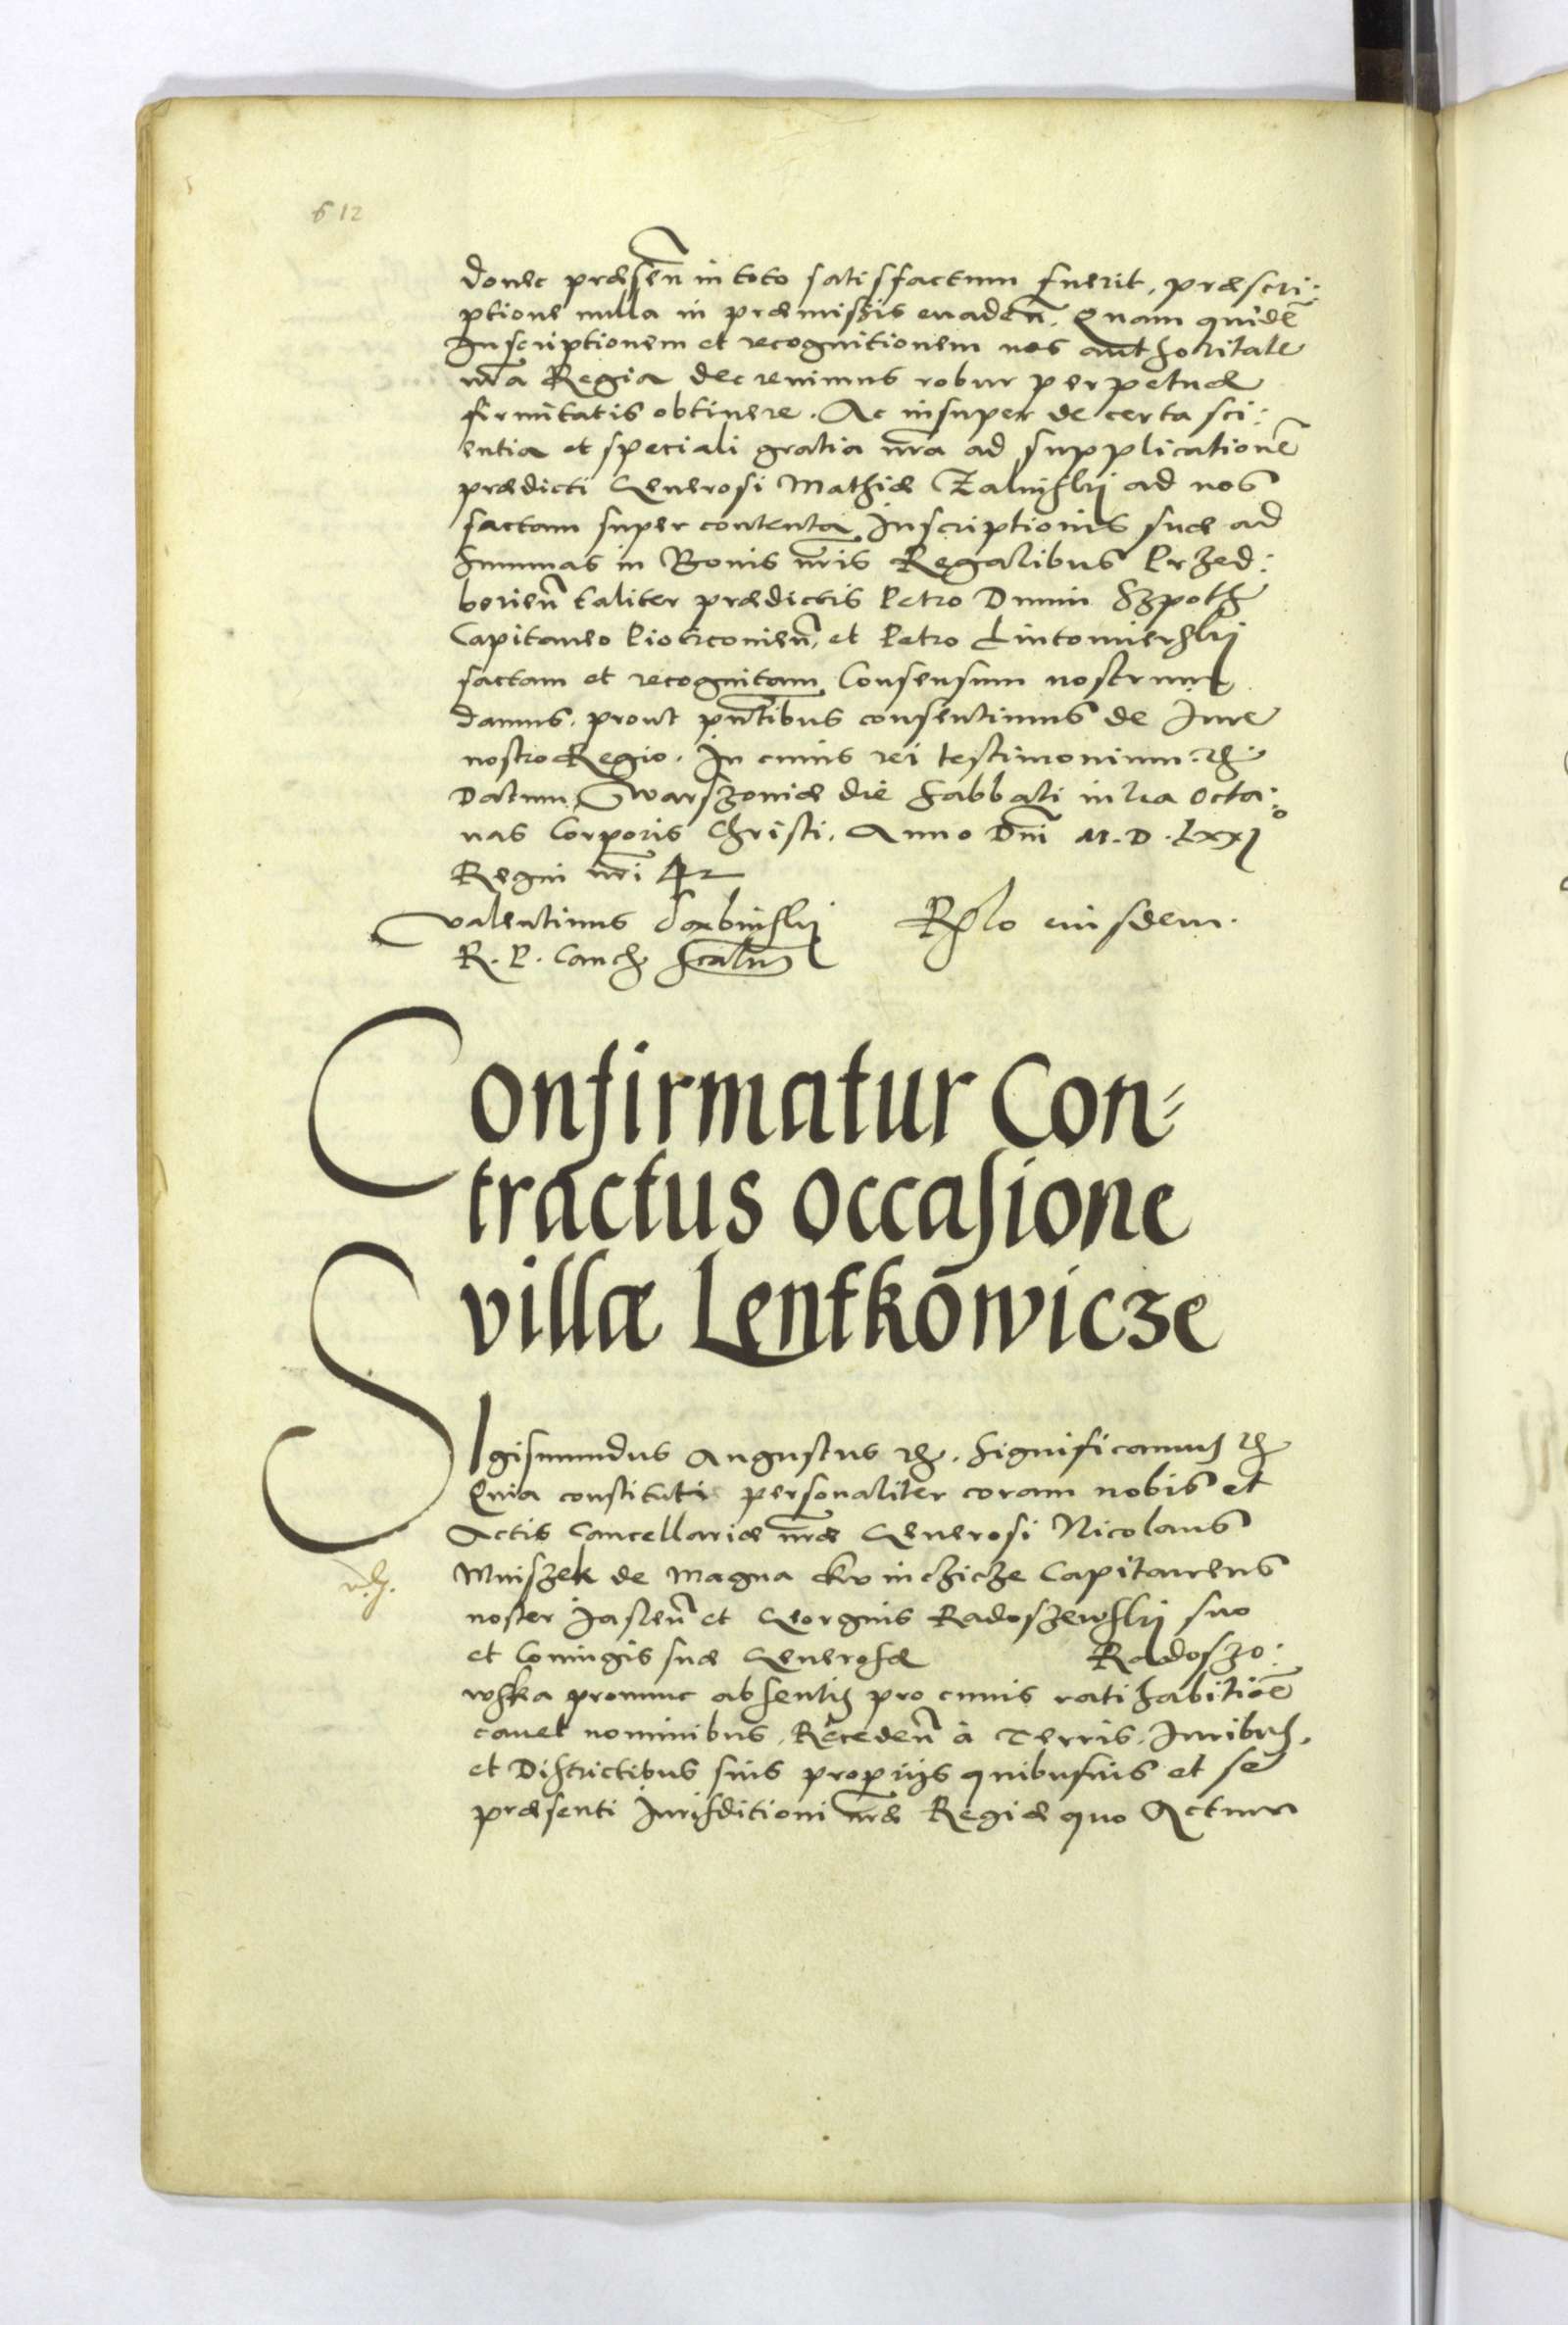 612
donec præsen̄ in toto satisfactum fuerit, præscri:
ptione nulla in præmissis euaden̄. Quam quidē
Inscriptionem et recognitionem nos authoritate
nr̄a Regia decreuimus robur perpetuæ
firmitatis obtinere. Ac insuper de certa sci:
entia et speciali gratia nr̄a ad supplicationē
prædicti Generosi Mathiæ Zalinskij ad nos
factam super contenta Inscriptionis suæ ad
Summas in Bonis nr̄is Regalibus Przed:
borien̄ taliter prædictis Petro Dunin Szpoth
Capitaneo Piotrconien̄, et Petro Lutomierskij
factam et recognitam Consensum nostrum
damus. prout pn̄tibus consentimus de Iure
nostro Regio. In cuius rei testimonium. etc:
Datum Warszouiæ die Sabbati intra Octa:
uas Corporis Christi. Anno Dn̄i M.D.LXXJ°
Regni nr̄i 42
Valentinus Dąbinskij Rl̄o eiusdem.
R. P. Canch. sc̄alus
Confirmatur Con=
tractus occasione
villæ Lentkowicze
SIgismundus Augustus etc. Significamus etc
Quia constituti personaliter coram nobis et
Actis Cancellariæ nr̄æ Generosi Nicolaus
Mniszek de Magna Kuinczicze Capitaneus
noster Jaslen̄ et Georgius Radoszewskij suo
et Coniugis suæ Generosæ Radoszo:
wska pronunc absentis pro cuius ratihabitiōe
cauet nominibus, Receden̄ à Terris. Iuribus.
et Districtibus suis proprijs quibusuis et se
præsenti Iurisditioni nr̄æ Regiæ quo Actum